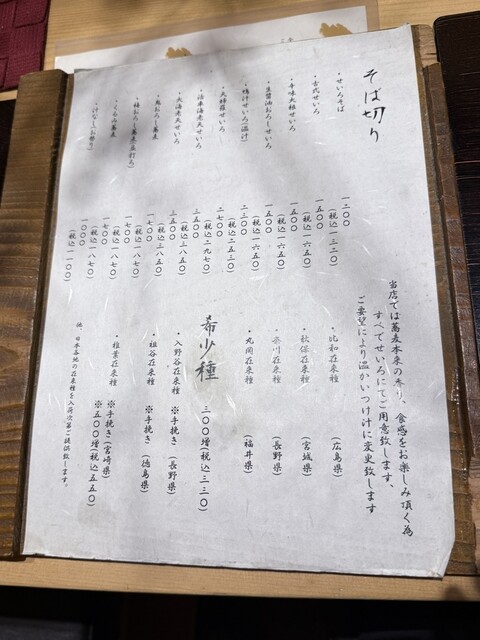 そば切り
・せいろそば
一二〇〇
(税込一三二〇)
・古代せいろ
一五〇〇
(税込一六五〇)
・辛味大根せいろ
一五〇〇
(税込一六五〇)
・生醤油おろしせいろ
一五〇〇
(税込一六五〇)
・鴨汁せいろ(温汁)
二三〇〇
(税込二五三〇)
せいろ
二七〇〇
(税込二九七〇)
海老天せいろ
三五〇〇
(税込三八五〇)
・大海老天せいろ
三五〇〇
(税込三八五〇)
おろし蕎麦
一七〇〇
(税込一八七〇)
おろし蕎麦
一七〇〇
(税込一八七〇)
・くるみ蕎麦
一七〇〇
(税込一八七〇)
一〇〇〇
(税込一一〇〇)
当店では蕎麦本来の香り、食感をお楽しみ頂く為
すべてせいろにてご用意致します、
ご要望により温かいつけ汁に変更致します
・比和在来種 (広島県)
・秋保在来種 (宮城県)
・奈川在来種 (長野県)
・丸岡在来種 (福井県)
希少種 三〇〇増(税込三三〇)
・入野谷在来種 ※手挽き(長野県)
・祖谷在来種 ※手挽き(徳島県)
・椎葉在来種 ※手挽き(宮崎県)
※五〇〇増(税込五五〇)
他、日本各地の在来種を入荷次第ご提供致します。